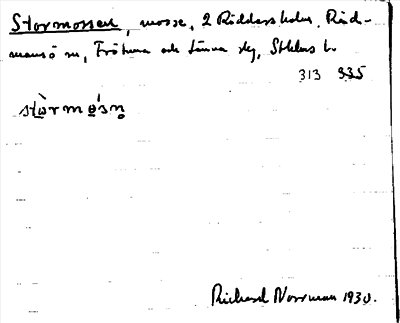 Stormossen, mosse, 2 Riddersholm, Råd-
mansö sn, Frötuna och Länna slg, Sthlms l.
313 335
stòrmǫ́sn̥
Richard Norrman 1930.